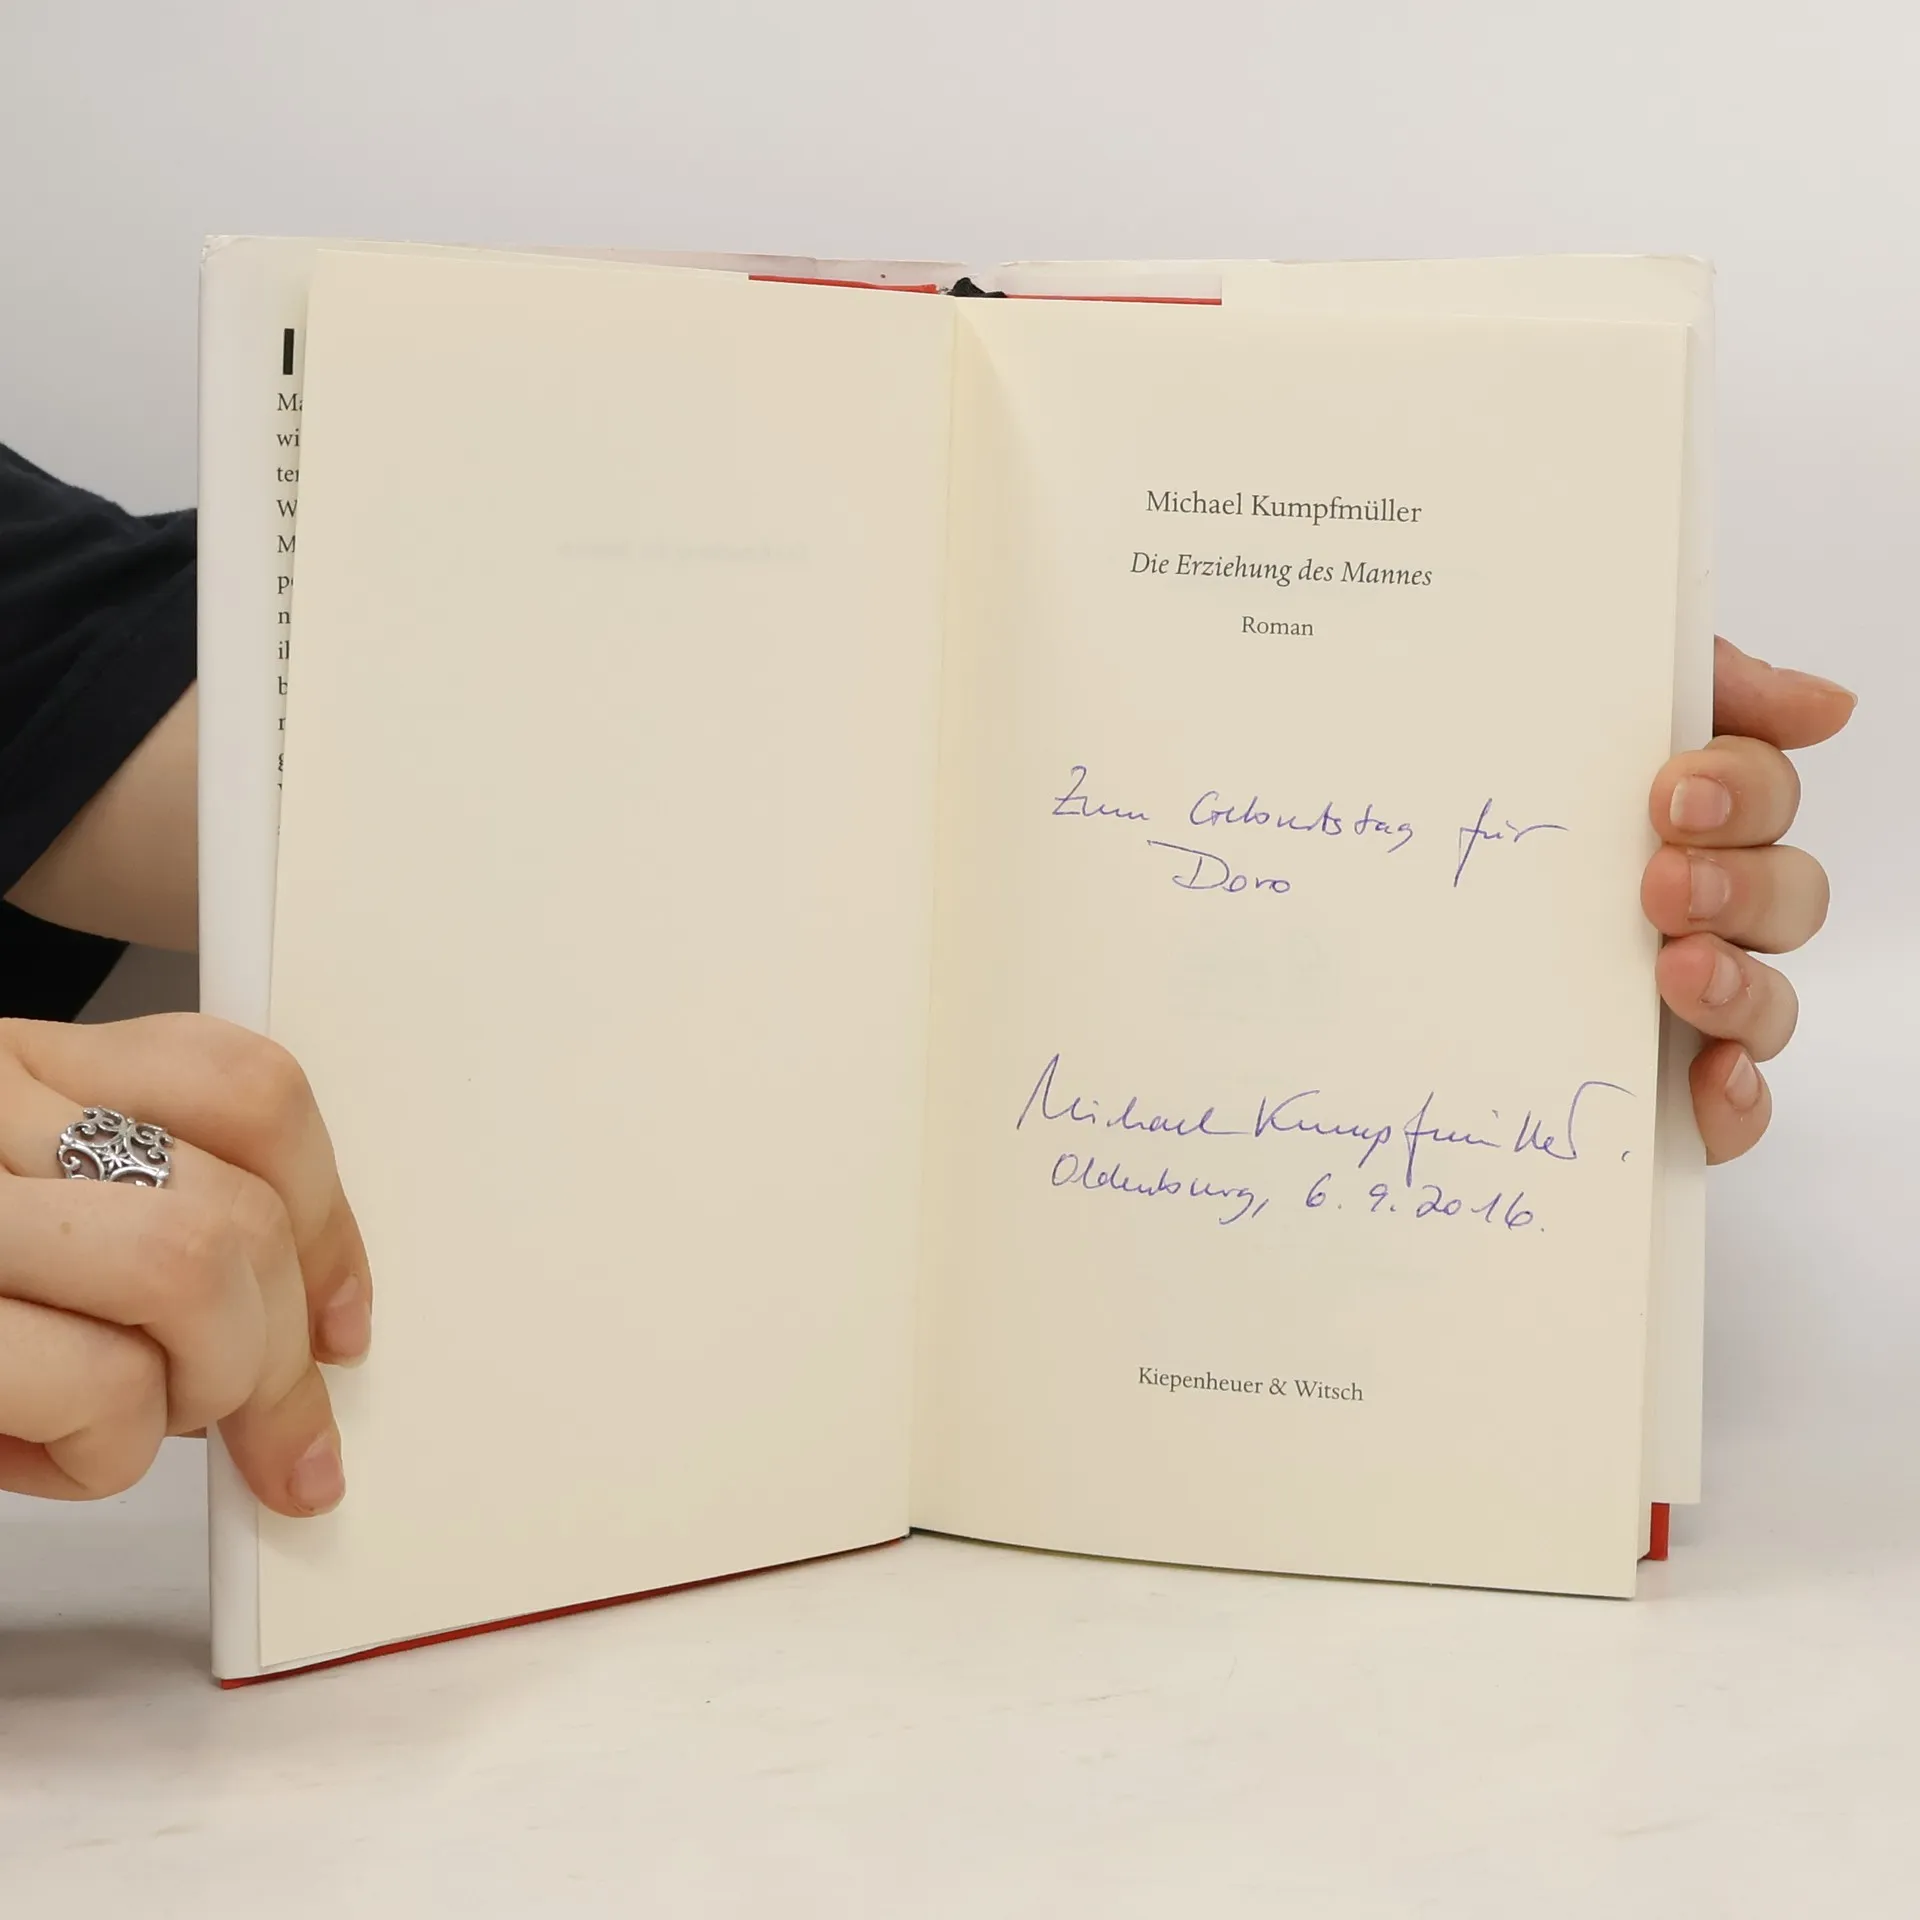 Ma
wi
ter
W
M
n
b
Michael Kumpfmüller
Die Erziehung des Mannes
Roman
Zum Geburtstag für
Doro
Michael Kumpfmüller.
Oldenburg, 6.9.2016.
Kiepenheuer & Witsch